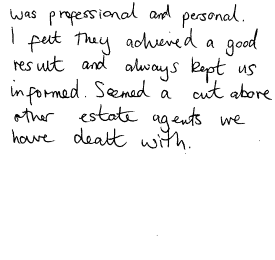 was professional and personal.
I felt they achieved a good
result and always kept us
informed. Seemed a cut above
other estate agents we
have dealt with.